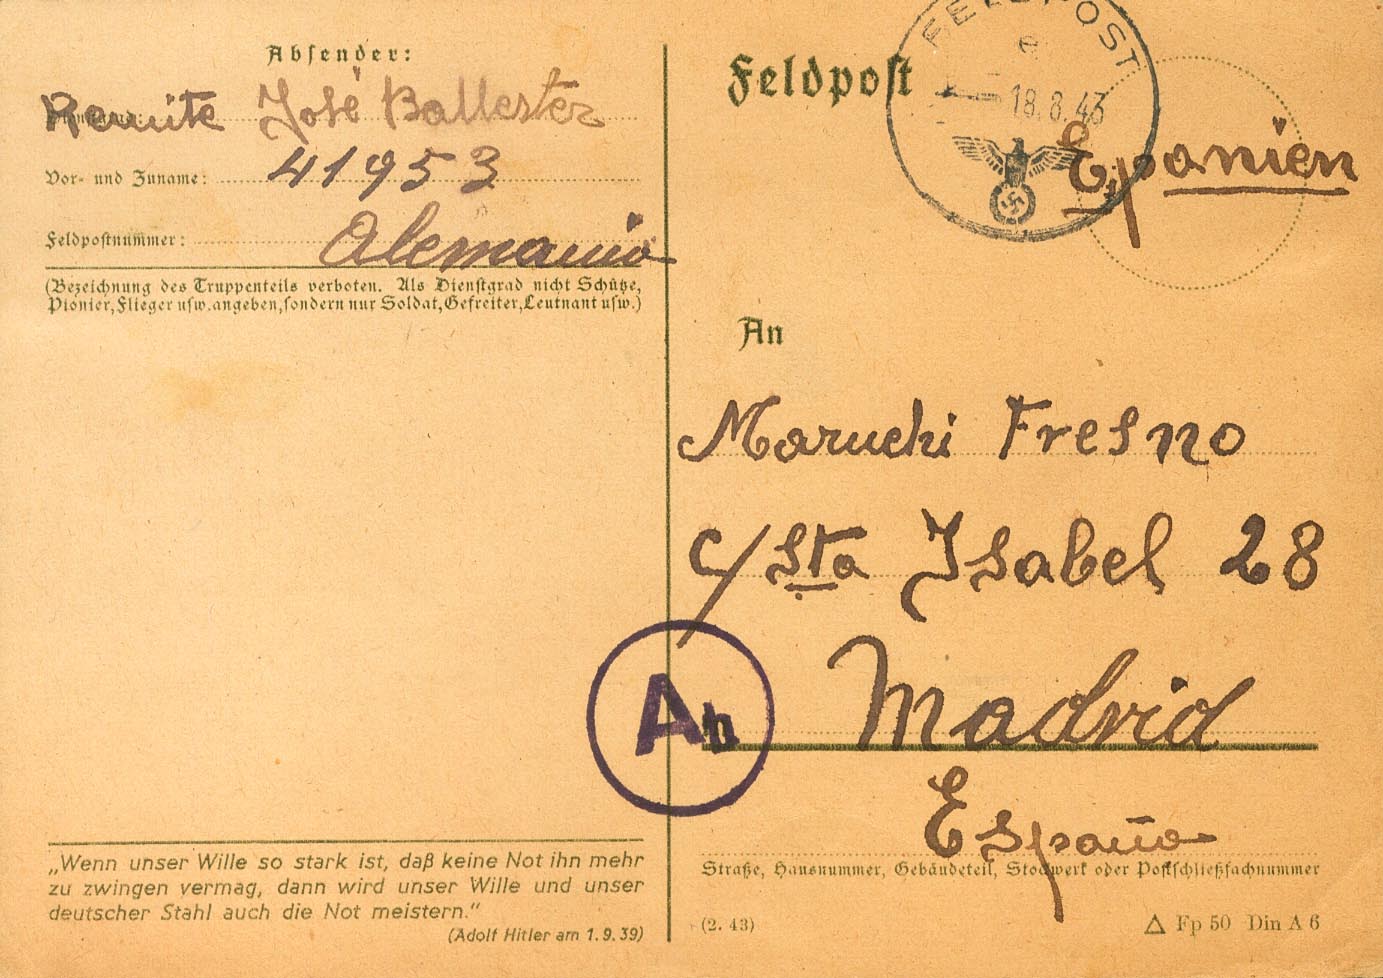 Absender:
Remite José Ballester
Vor- und Zuname: 41953
Feldpostnummer: Alemania
(Bezeichnung des Truppenteils verboten. Als Dienstgrad nicht Schütze,
Pionier, Flieger usw. angeben, sondern nur Soldat, Gefreiter, Leutnant usw.)
„Wenn unser Wille so stark ist, daß keine Not ihn mehr
zu zwingen vermag, dann wird unser Wille und unser
deutscher Stahl auch die Not meistern.“
(Adolf Hitler am 1.9.39)
Ab
Feldpost
FELDPOST
e
18.8.43
Epanien
An
Maruchi Fresno
c/ Sta Isabel 28
Madrid
España
Straße, Hausnummer, Gebäudeteil, Stockwerk oder Postschließfachnummer
(2. 43)
Fp 50 Din A 6